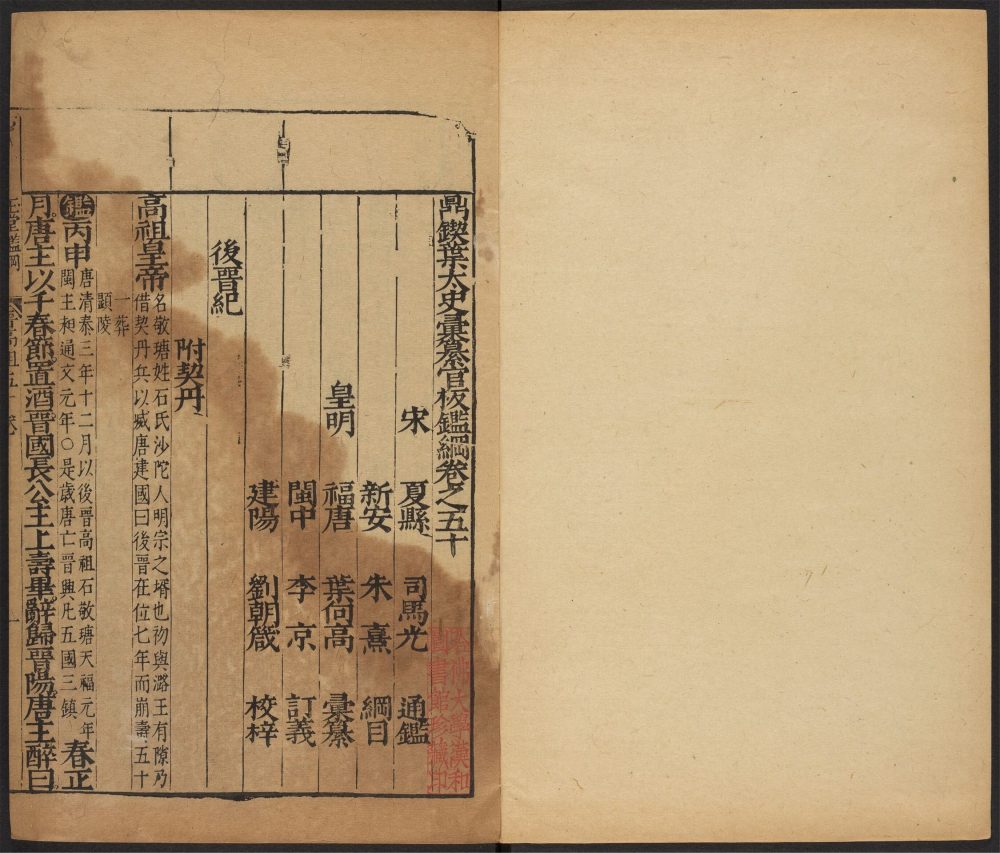 鼎鍥葉太史彙纂官板鑑綱卷之五十
宋 夏縣 司馬光 通鑑
新安 朱熹 綱目
皇明 福唐 葉向高 彙纂
閩中 李京 訂義
建陽 劉朝箴 校梓
後晉紀
附契丹
高祖皇帝
名敬瑭姓石氏沙陀人明宗之壻也初與潞王有隙乃
借契丹兵以滅唐建國曰後晉在位七年而崩壽五十
一葬
顯陵
鑑丙申
唐清泰三年十二月以後晉高祖石敬瑭天福元年
閩主昶通文元年○是歲唐亡晉興凡五國三鎮
春正
月唐主以千春節置酒晉國長公主上壽畢辭歸晉陽唐主醉曰
哈佛大學漢和
圖書館珍藏印